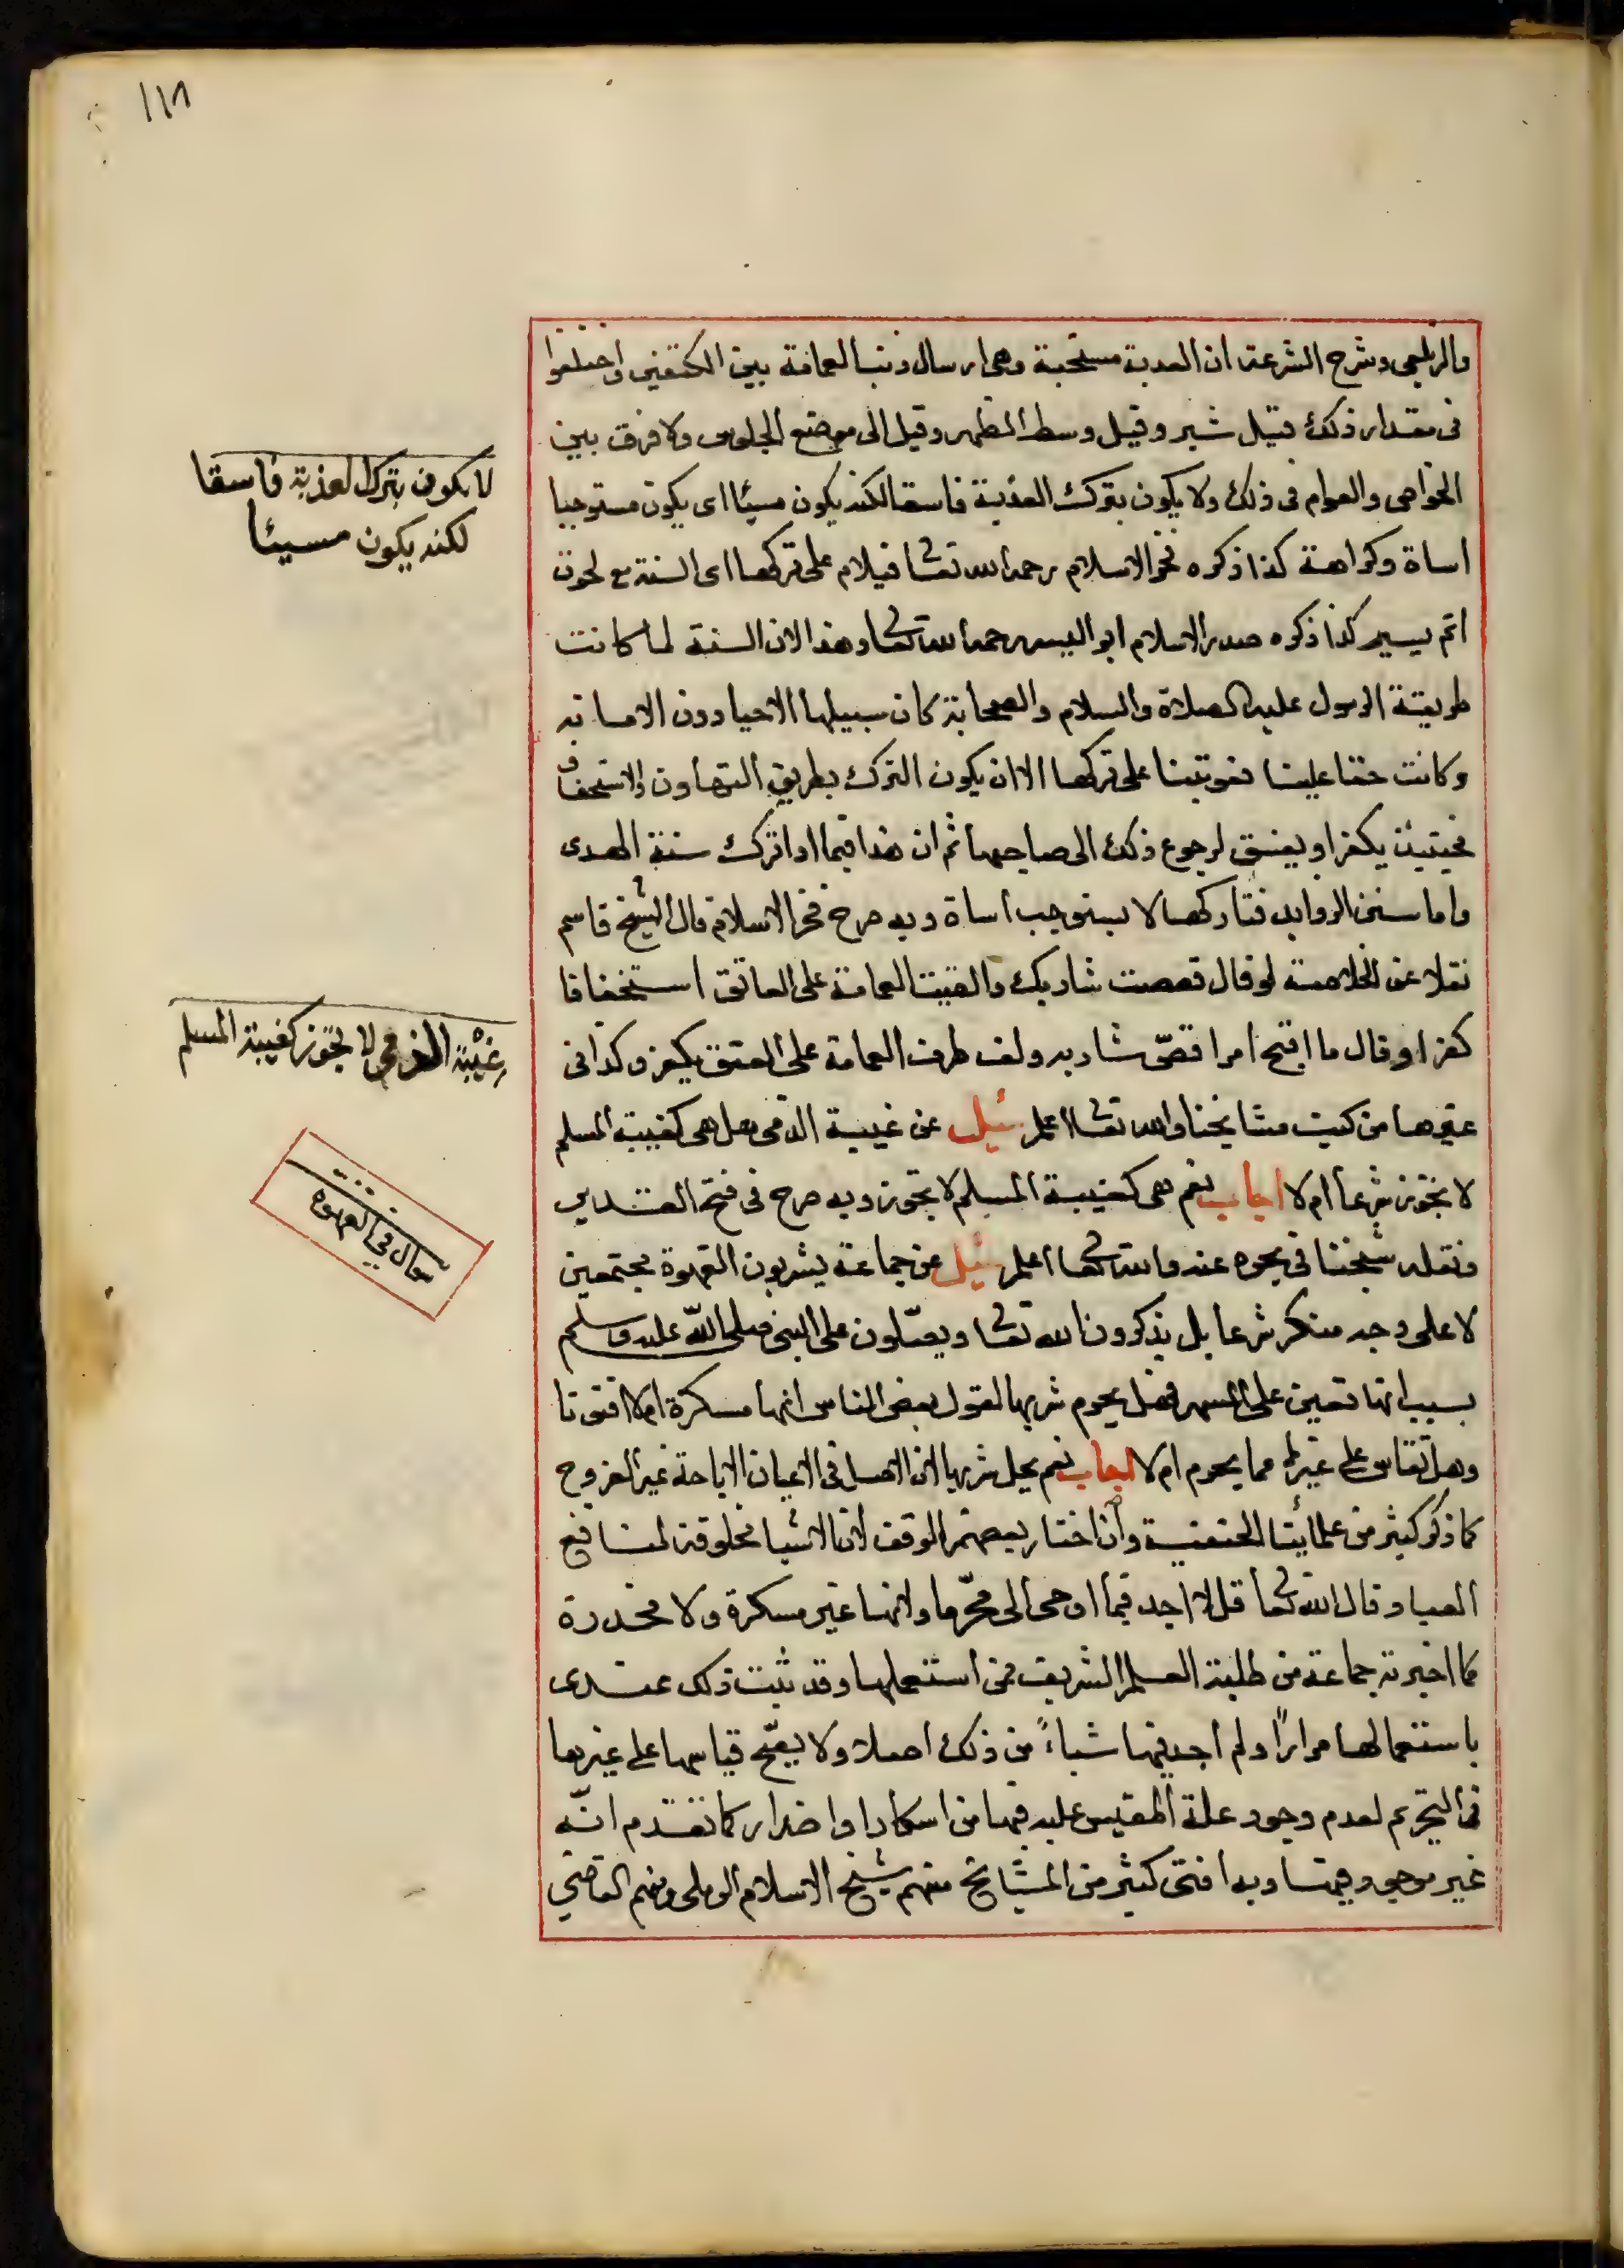 ١١٨
والزيلعي وشرح الشرعة ان العدبة مستحبة وهي ارسال ذنب العمامة بين الكتفين واختلفوا
في مقدار ذلك فقيل شبر وقيل وسط الظهر وقيل الى موضع الجلوس ولا فرق بين
الخواص والعوام في ذلك ولا يكون بترك العذبة فاسقا لكنه يكون مسيئا اى يكون مستوجبا
اساة وكراهة كذا ذكره فخر الاسلام رحمه الله تعالى فيلام على تركها اى السنة مع لحوق
اثم يسير كذا ذكره صدر الاسلام ابو اليسر رحمه الله تعالى وهذا لان السنة لما كانت
طريقة الرسول عليه الصلاة والسلام والصحابة كان سبيلها الاحيا دون الاماتة
وكانت حقا علينا فعوتبنا على تركها الا ان يكون الترك بطريق التهاون والاستخفاف
فحينئذ يكفر او يفسق لرجوع ذلك الى صاحبها ثم ان هذا فيما اذا ترك سنة الهدى
واما سنن الزوايد فتاركها لا يستوجب اساة وبه صرح فخر الاسلام قال الشيخ قاسم
نقلا عن الخلاصة لو قال قصصت شاربك والقيت العمامة على العاتق استخفافا
كفر او قال ما اقبح امرا قصّ شاربه ولف طرف العمامة على العنق يكفر وكذا في
غيرها من كتب مشايخنا والله تعالى اعلم سُيل عن غيبة الذمي هل هي كغيبة المسلم
لا تجوز شرعا ام لا اجاب نعم هي كغيبة المسلم لا تجوز وبه صرح في فتح القدير
ونقله شيخنا في بحره عنه والله تعالى اعلم سُيل عن جماعة يشربون القهوة مجتمعين
لا على وجه منكر شرعا بل يذكرون الله تعالى ويصلّون على النبي صلى الله عليه وسلم
بسبب انها تعين على السهر فهل يحرم شربها لقول بعض الناس انها مسكرة ام لا افتونا
وهل تقاس على غيرها مما يحرم ام لا اجاب نعم يحل شربها لان الاصل في الاعيان الاباحة غير الفروج
كما ذكر كثير من علمائنا الحنفية وان اختار بعضهم الوقف لان الاشيا مخلوقة لمنافع
العباد قال الله تعالى قل لا اجد فيما اوحى الى محرّما وانها غير مسكرة ولا مخدرة
كما اخبر به جماعة من طلبة العلم الشريف ممن استعملها وقد ثبت ذلك عندى
باستعمالها مرارًا ولم اجد فيها شياءً من ذلك اصلا ولا يصّح قياسها على غيرها
في التحريم لعدم وجود علة المقيس عليه فيها من اسكار او اضرار كما تقدم انّه
غير موجود فيها وبه افتى كثير من المشايخ منهم شيخ الاسلام الرملي ومنهم القاضي
لا يكون بترك العذبة فاسقا
لكنه يكون مسيئا
غيبة الذمي لا تجوز كغيبة المسلم
سوال في القهوه